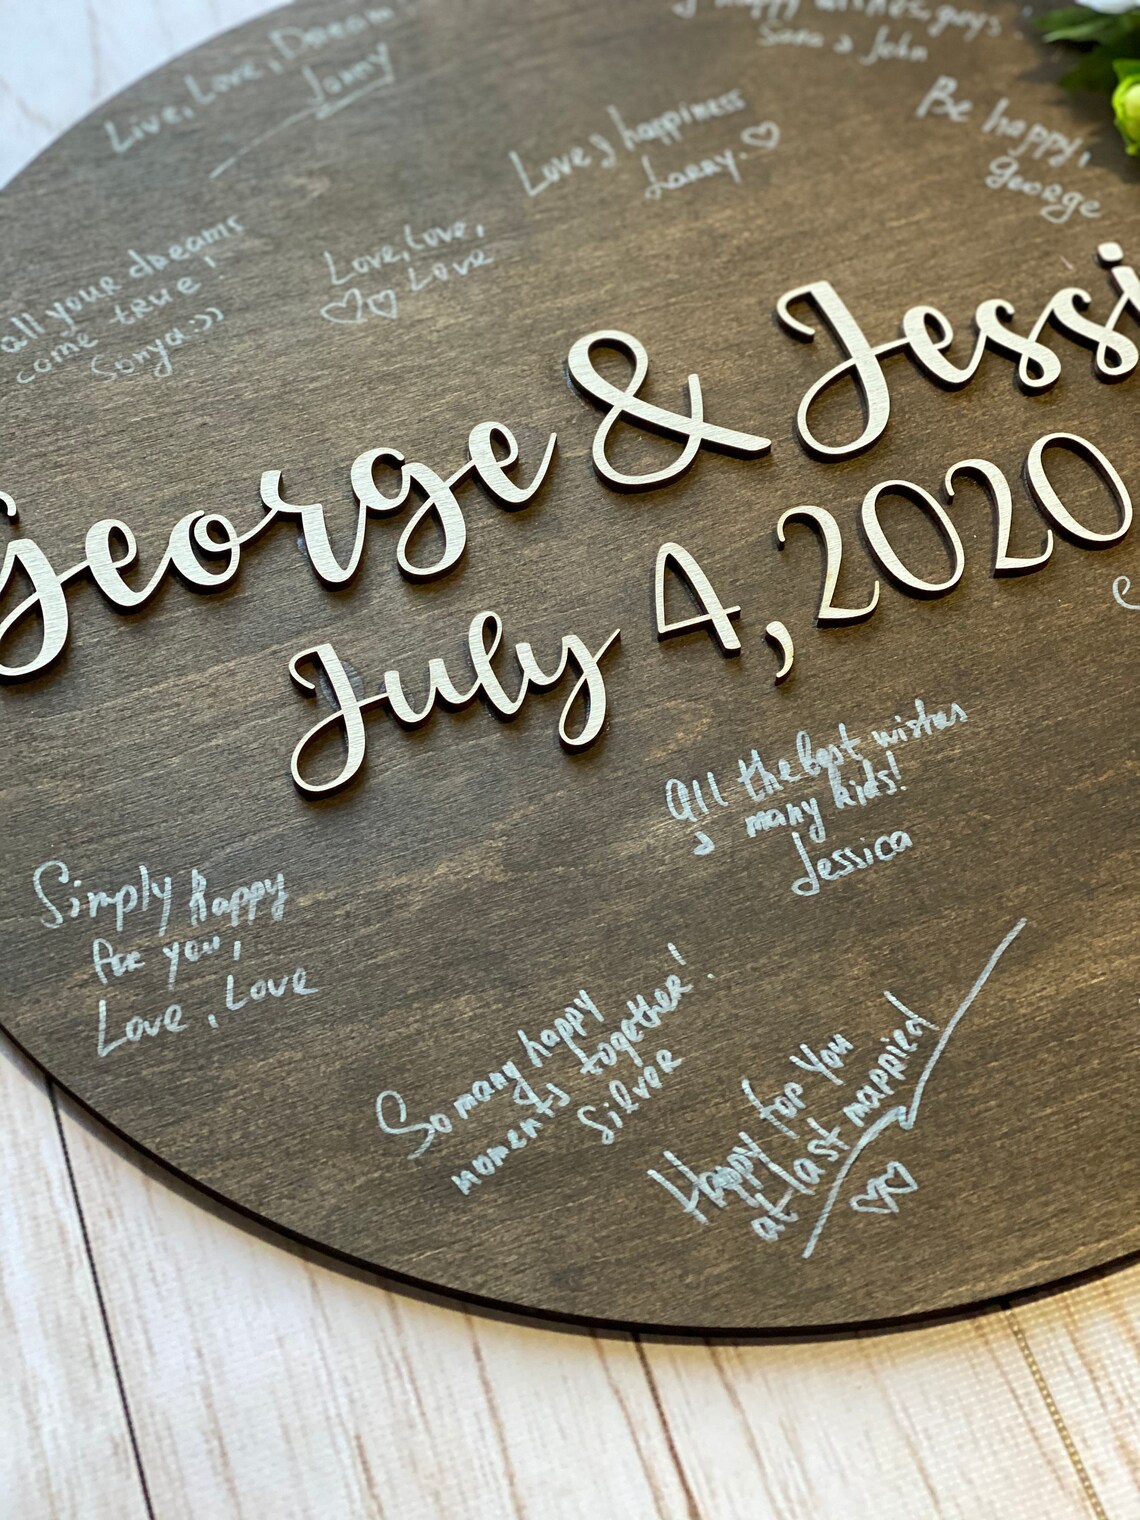 Live, Love, Dream
Jonny
happy wishes, guys!
Sara & John
Love & happiness
Larry.
Be happy,
George
all your dreams
come true,
Sonya:))
Love, Love,
Love
George & Jessi
July 4, 2020
All the best wishes
& many kids!
Jessica
Simply happy
for you,
Love, Love
So many happy
moments together!
Silver
Happy for you
at last married